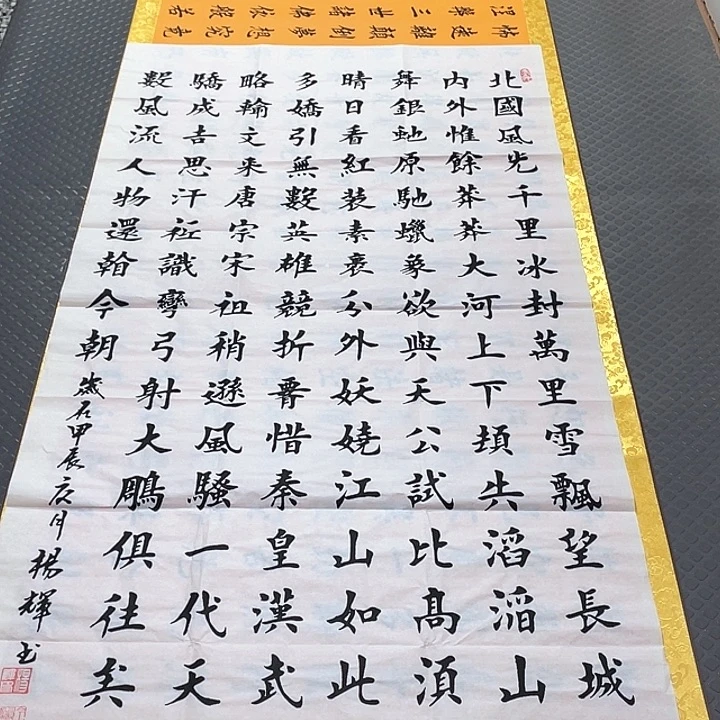 涅槃三世諸佛依般若
怖遠離顛倒夢想究竟
北國風光千里冰封萬里雪飄望長城
内外惟餘莽莽大河上下頓失滔滔山
舞銀蛇原馳蠟象欲與天公試比高須
晴日看紅裝素裹分外妖嬈江山如此
多嬌引無數英雄競折腰惜秦皇漢武
略輸文采唐宗宋祖稍遜風騷一代天
驕成吉思汗祗識彎弓射大鵰俱往矣
數風流人物還看今朝
歲在甲辰月楊輝书